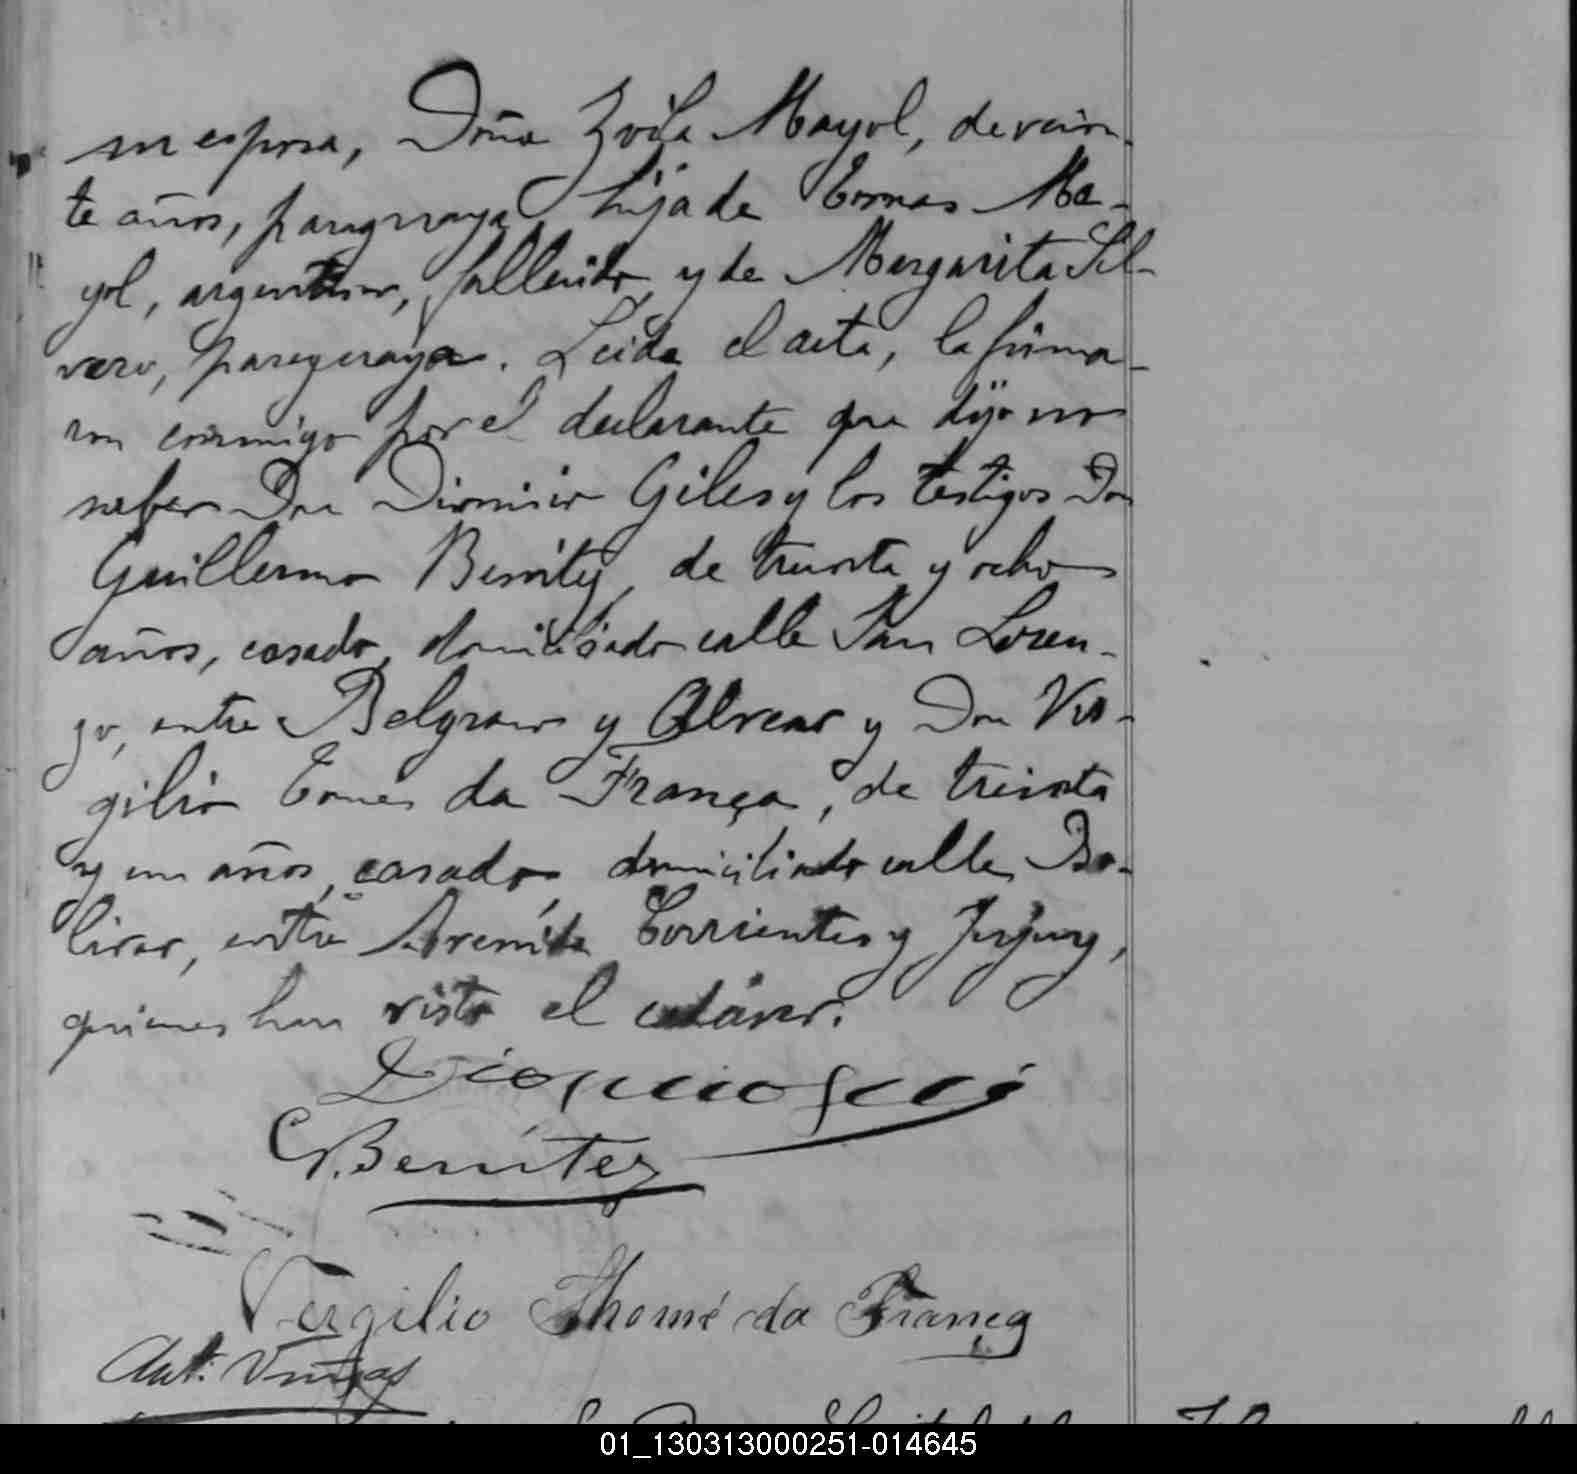 su esposa, Doña Zoila Mayol, de vein-
te años, paraguaya, hija de Tomas Ma-
yol, argentino, fallecido, y de Margarita Sil-
vero, paraguaya. Leida el acta, la firma-
ron conmigo por el declarante que dijo no
saber Don Dionisio Giles y los testigos Don
Guillermo Benitez, de treinta y ocho
años, casado, domiciliado calle San Loren-
zo, entre Belgrano y Alvear y Don Vir-
gilio Tomé da França, de treinta
y un años, casado, domiciliado calle Bo-
livar, entre Avenida Corrientes y Jujuy,
quienes han visto el cadáver.
Dionicio
G. Benítez
Vergilio Thomé da França
Ant.
01_130313000251-014645